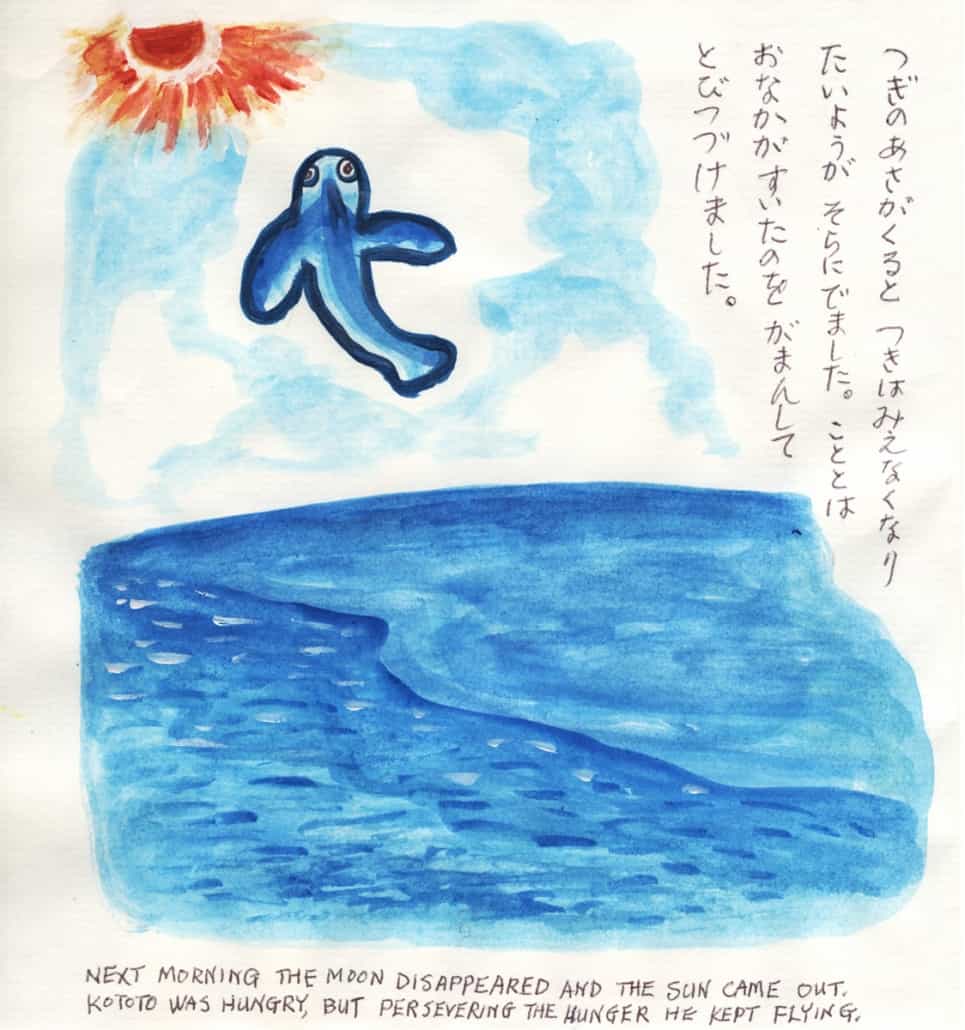 つぎのあさがくると つきはみえなくなり
たいようが そらにでました。こととは
おなかがすいたのを がまんして
とびつづけました。
NEXT MORNING THE MOON DISAPPEARED AND THE SUN CAME OUT.
KOTOTO WAS HUNGRY, BUT PERSEVERING THE HUNGER HE KEPT FLYING.